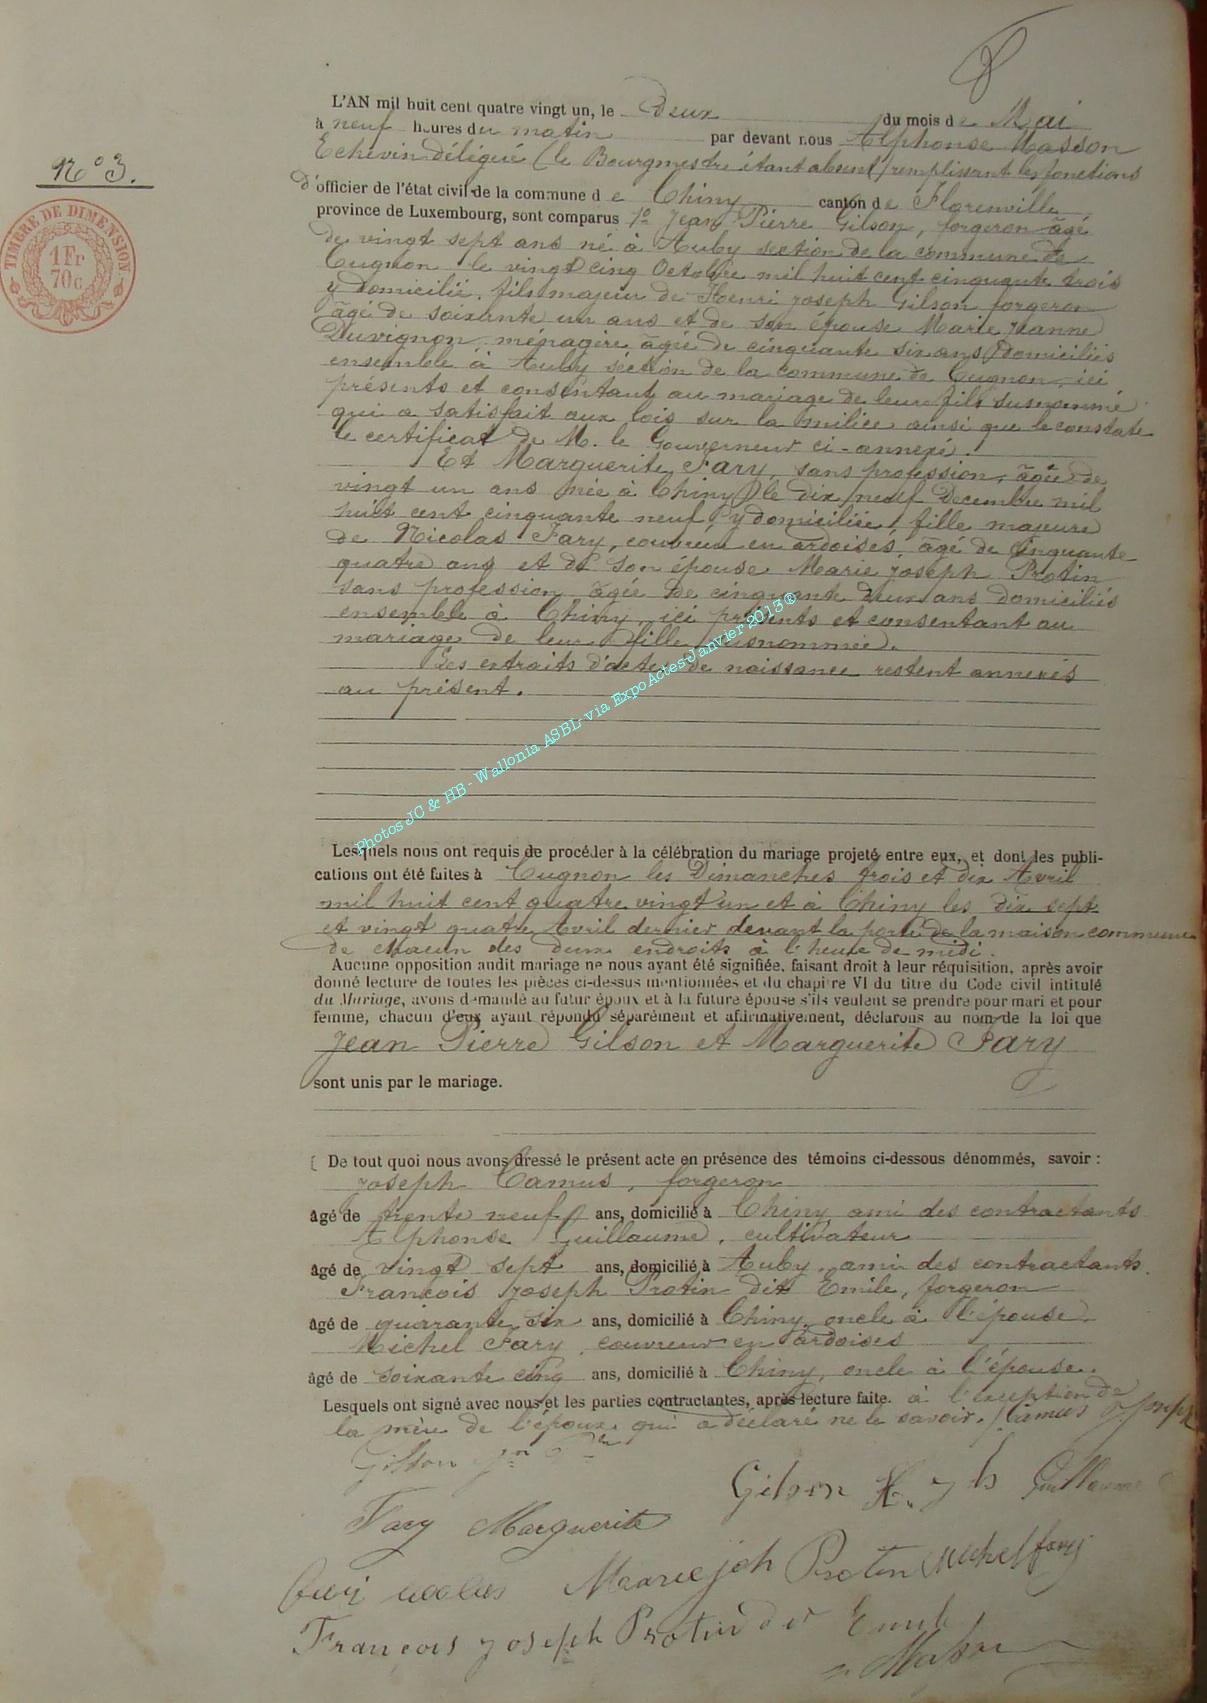 8
N° 3.
TIMBRE DE DIMENSION
1 Fr
70 c
L'AN mil huit cent quatre vingt un, le Deux du mois de Mai
à neuf heures du matin par devant nous Alphonse Masson
Echevin délégué (le Bourgmestre étant absent) remplissant les fonctions
d'officier de l'état civil de la commune de Chiny canton de Florenville
province de Luxembourg, sont comparus 1° Jean Pierre Gilson, forgeron âgé
de vingt sept ans né à Auby section de la commune de
Cugnon le vingt cinq Octobre mil huit cent cinquante trois
y domicilié, fils majeur de Henri Joseph Gilson forgeron
âgé de soixante un ans et de son épouse Marie Jeanne
Duvignon ménagère âgée de cinquante six ans domiciliés
ensemble à Auby section de la commune de Cugnon, ici
présents et consentant au mariage de leur fils susnommé
qui a satisfait aux lois sur la milice ainsi que le constate
le certificat de M. le Gouverneur ci-annexé.
Et Marguerite Fary, sans profession, âgée de
vingt un ans née à Chiny le dix neuf Decembre mil
huit cent cinquante neuf y domiciliée, fille majeure
de Nicolas Fary, couvreur en ardoises, âgé de cinquante
quatre ans et de son épouse Marie Joseph Protin
sans profession âgée de cinquante deux ans domiciliés
ensemble à Chiny, ici présents et consentant au
mariage de leur fille susnommée.
Les extraits d'actes de naissance restent annexés
au présent.
Photos JC & HB - Wallonia ASBL via ExpoActes-Janvier 2013®
Lesquels nous ont requis de procéder à la célébration du mariage projeté entre eux, et dont les publi-
cations ont été faites à Cugnon les Dimanches trois et dix Avril
mil huit cent quatre vingt un et à Chiny les dix sept
et vingt quatre Avril dernier devant la porte de la maison commune
de chacun des deux endroits à l'heure de midi.
Aucune opposition audit mariage ne nous ayant été signifiée, faisant droit à leur réquisition, après avoir
donné lecture de toutes les pièces ci-dessus mentionnées et du chapitre VI du titre du Code civil intitulé
du Mariage, avons demandé au futur époux et à la future épouse s'ils veulent se prendre pour mari et pour
femme, chacun d'eux ayant répondu séparément et affirmativement, déclarons au nom de la loi que
Jean Pierre Gilson et Marguerite Fary
sont unis par le mariage.
De tout quoi nous avons dressé le présent acte en présence des témoins ci-dessous dénommés, savoir :
Joseph Camus, forgeron
âgé de trente neuf ans, domicilié à Chiny ami des contractants
Alphonse Guillaume, cultivateur
âgé de vingt sept ans, domicilié à Auby, ami des contractants.
François Joseph Protin dit Emile, forgeron
âgé de quarante six ans, domicilié à Chiny, oncle à l'épouse
Michel Fary, couvreur en ardoises
âgé de soixante cinq ans, domicilié à Chiny, oncle à l'épouse.
Lesquels ont signé avec nous et les parties contractantes, après lecture faite. à l'exception de
la mère de l'époux qui a déclaré ne le savoir. Camus Joseph
Gilson Jn Pre
Gilson H. Jh Guillaume
Fary Marguerite
Mariejoh Protin Michel fary
François Joseph Protin dit Emile
Masson